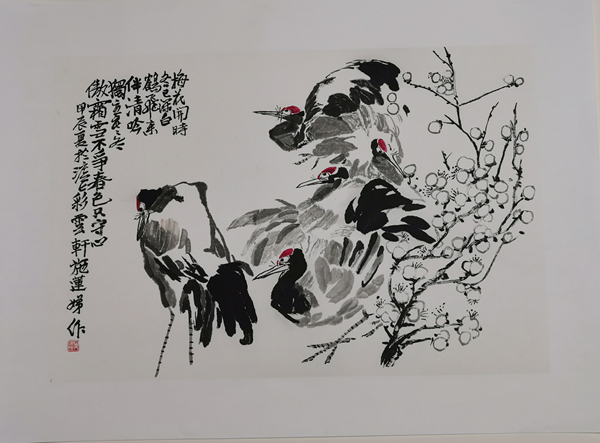 梅花開時
冬已深白
鶴飛來
伴清吟
獨立寒冬
傲霜雪不爭春色只守心
甲辰夏於滬上彩雲軒施蓮娣作